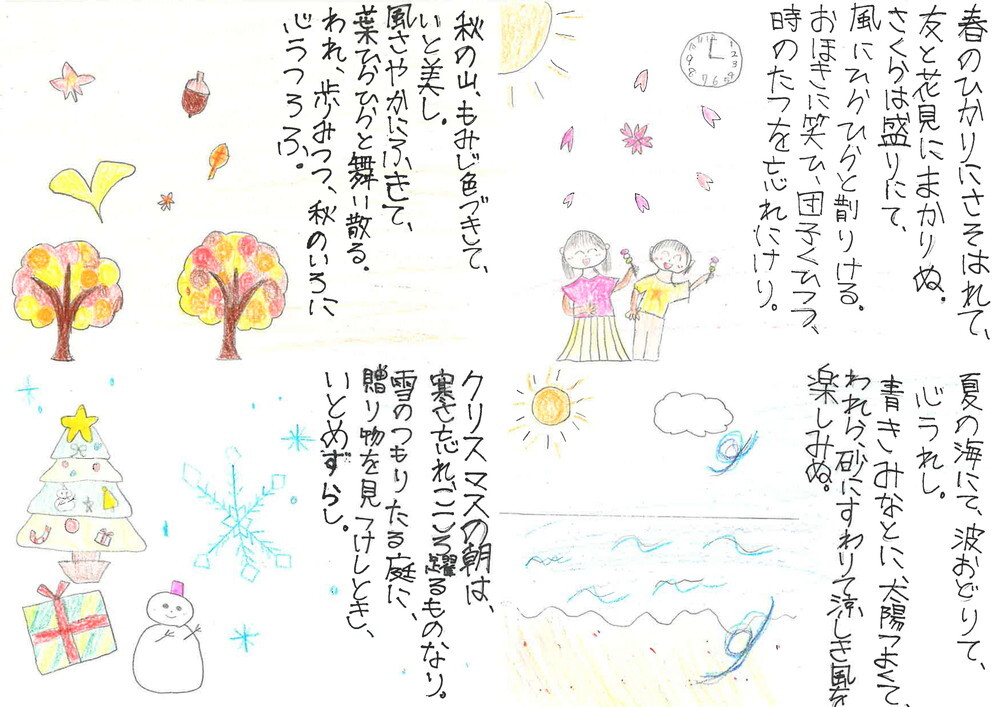 春のひかりにさそはれて、
友と花見にまかりぬ。
さくらは盛りにて、
風にひらひらと散りける。
おほきに笑ひ、団子くひつつ、
時のたつを忘れにけり。
12
1
2
3
4
5
6
7
8
9
10
11
夏の海にて、波おどりて、
心うれし。
青きみなとに、太陽つよくて、
われら、砂にすわりて涼しき風を
楽しみぬ。
秋の山、もみじ色づきて、
いと美し。
風さやかにふきて、
葉ひらひらと舞い散る。
われ、歩みつつ、秋のいろに
心うつろふ。
クリスマスの朝は、
寒さ忘れ、こころ躍るものなり。
雪のつもりたる庭に、
贈り物を見つけしとき、
いとめずらし。